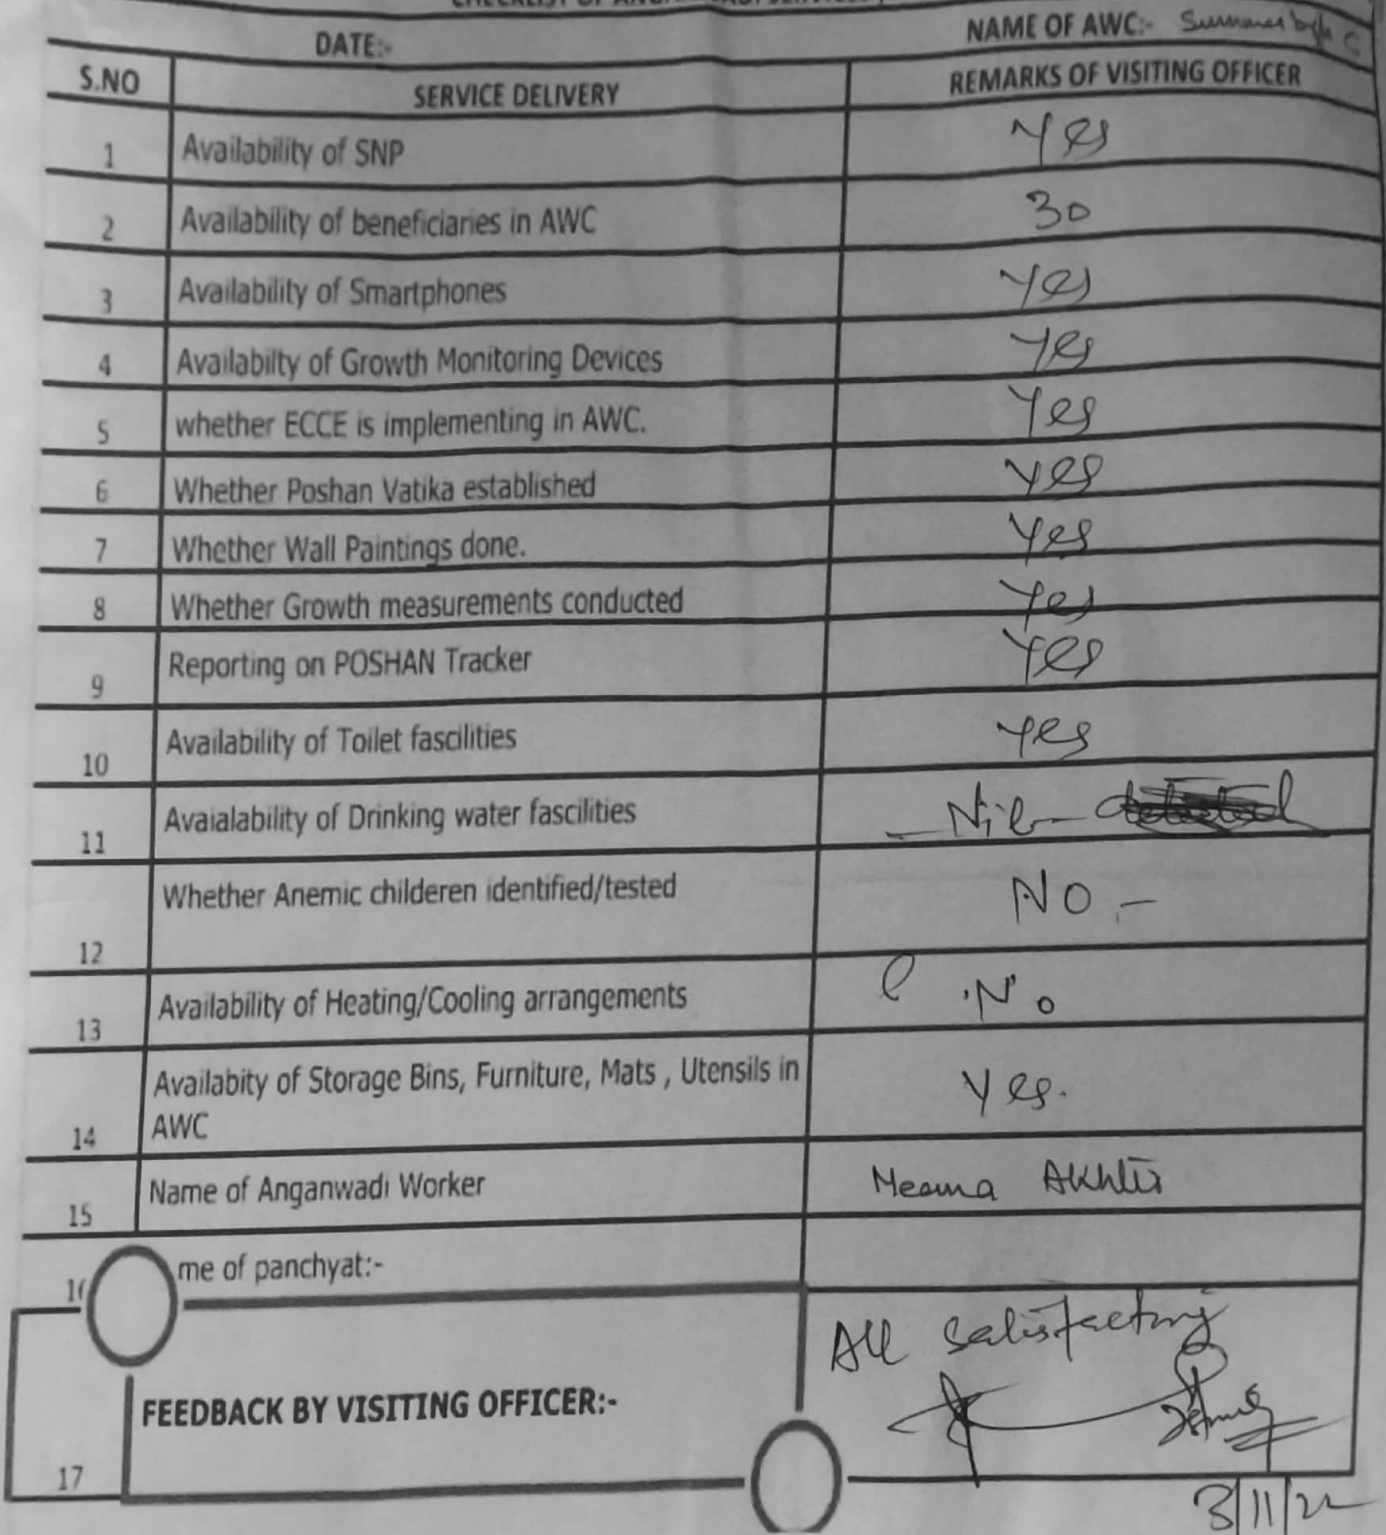 CHECKLIST OF
DATE:-
NAME OF AWC:-
S.NO SERVICE DELIVERY REMARKS OF VISITING OFFICER
1 Availability of SNP Yes
2 Availability of beneficiaries in AWC 30
3 Availability of Smartphones Yes
4 Availabilty of Growth Monitoring Devices Yes
5 whether ECCE is implementing in AWC. Yes
6 Whether Poshan Vatika established Yes
7 Whether Wall Paintings done. Yes
8 Whether Growth measurements conducted Yes
9 Reporting on POSHAN Tracker Yes
10 Availability of Toilet fascilities Yes
11 Avaialability of Drinking water fascilities - Nil -
12 Whether Anemic childeren identified/tested NO -
13 Availability of Heating/Cooling arrangements No
14 Availabity of Storage Bins, Furniture, Mats , Utensils in
AWC Yes.
15 Name of Anganwadi Worker Akhter
16 me of panchyat:-
All satisfactory
17 FEEDBACK BY VISITING OFFICER:-
3/11/22